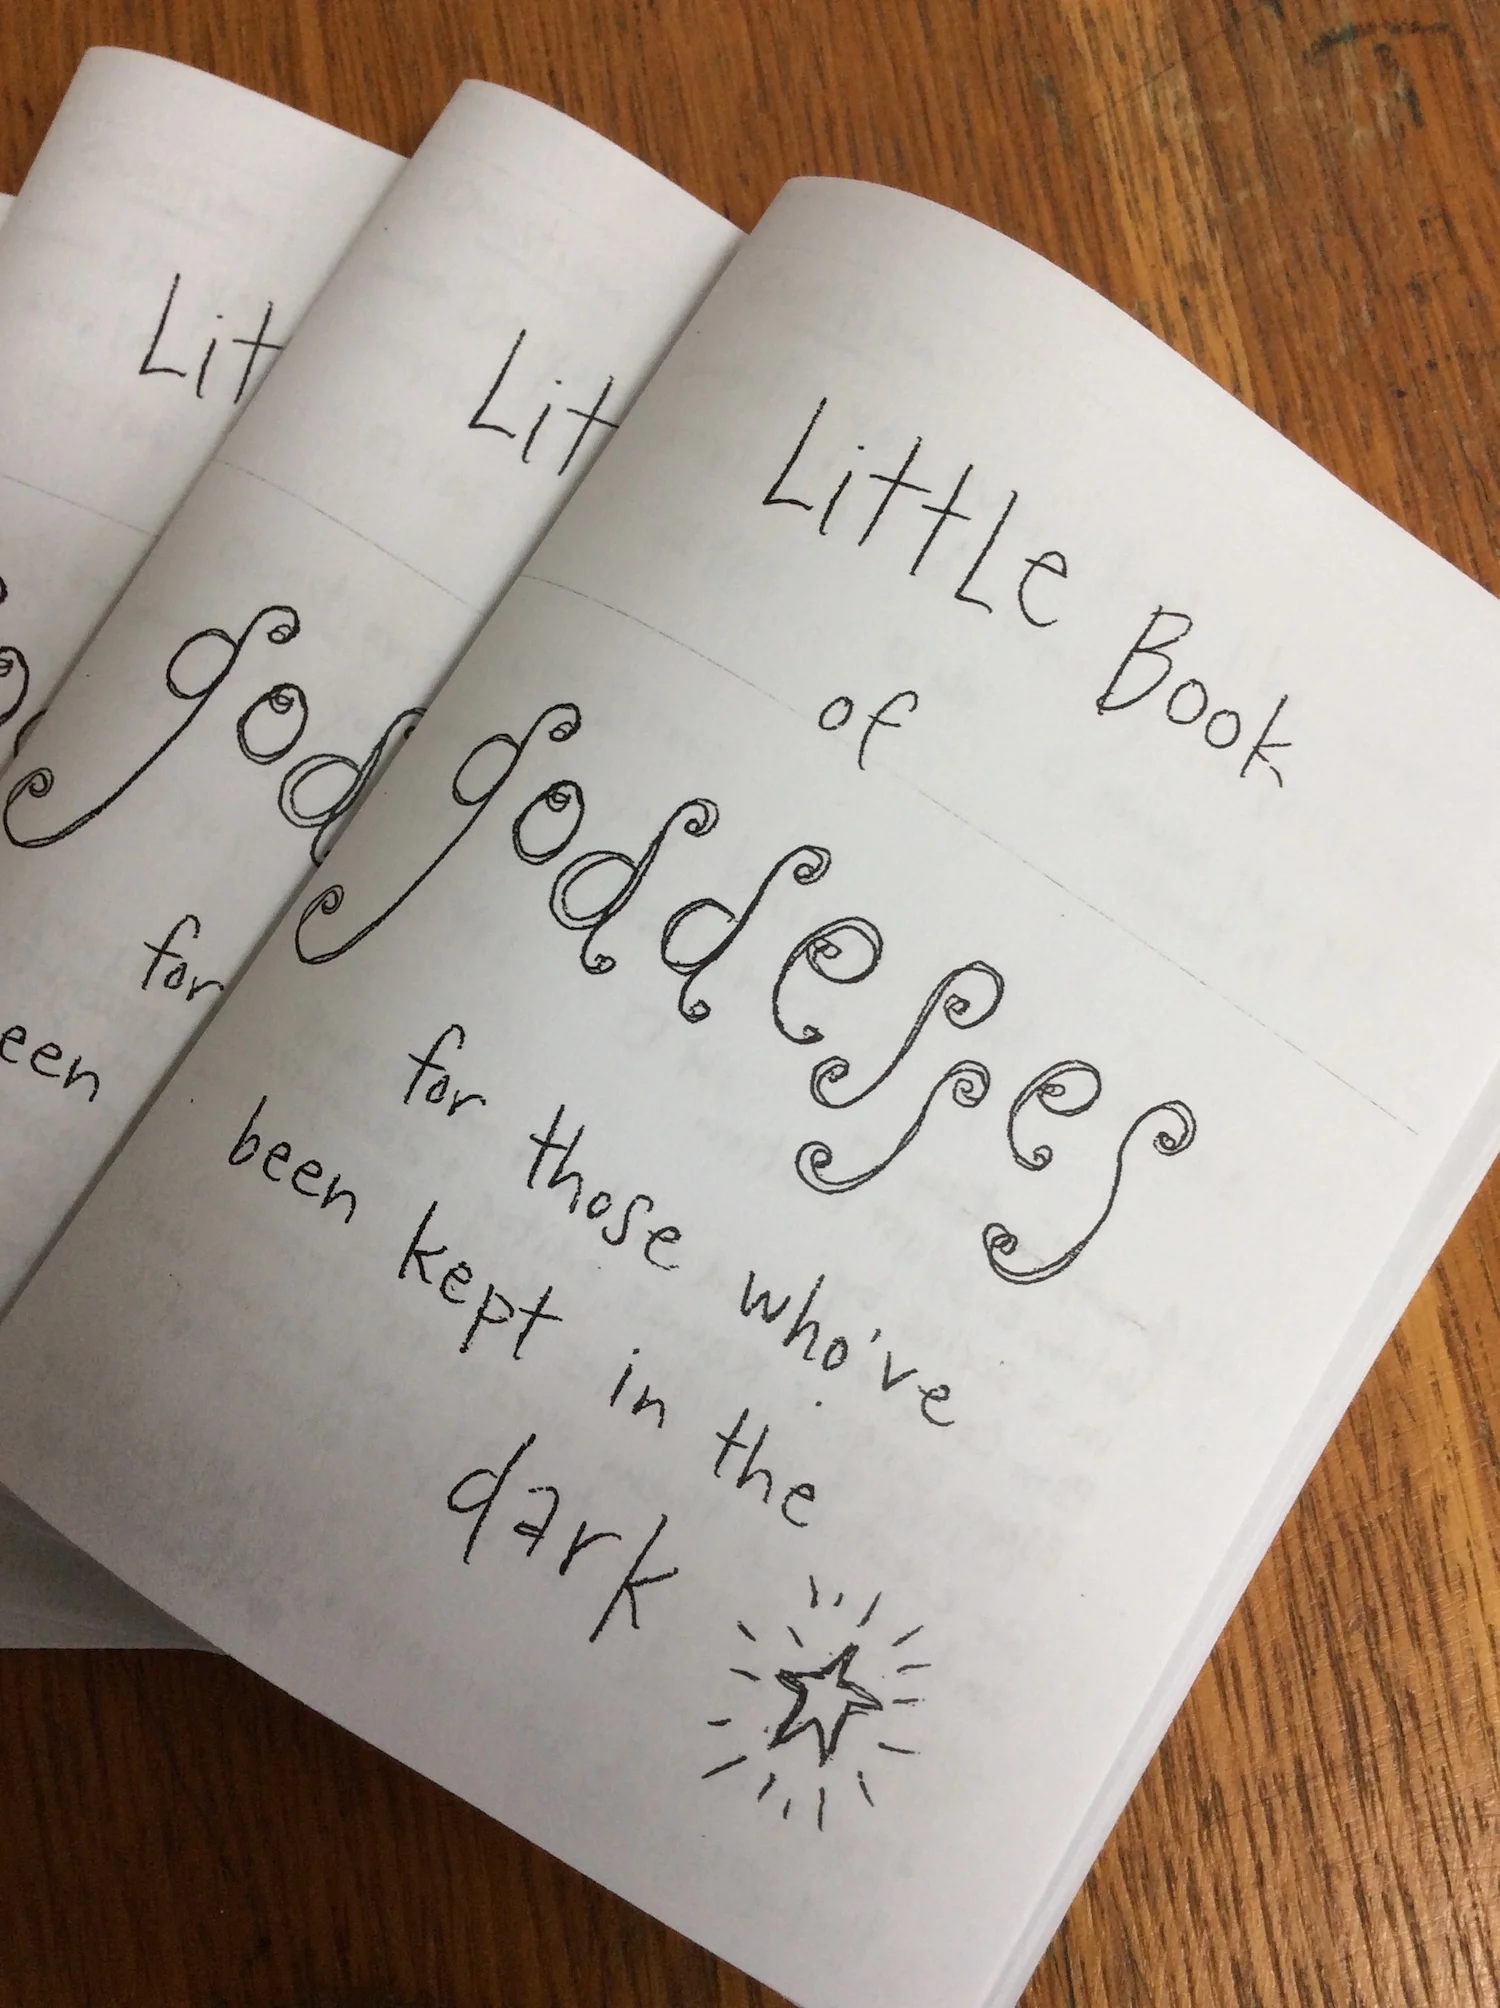 Little Book
of
goddesses
for those who've
been kept in the
dark
Lit
god
for
Lit
een